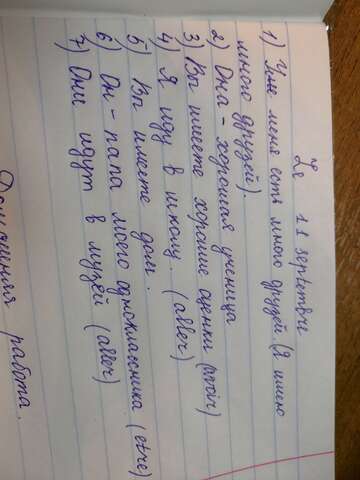 Le 11 septembre
1) У мне меня есть много друзей. (Я имею
много друзей).
2) Она - хорошая ученица
3) Вы имеете хорошие оценки (avoir)
4) Я иду в школу. (aller)
5) Вы имеете дом.
6) Он - папа моего одноклассника (etre)
7) Они идут в музей (aller)
Домашняя работа.